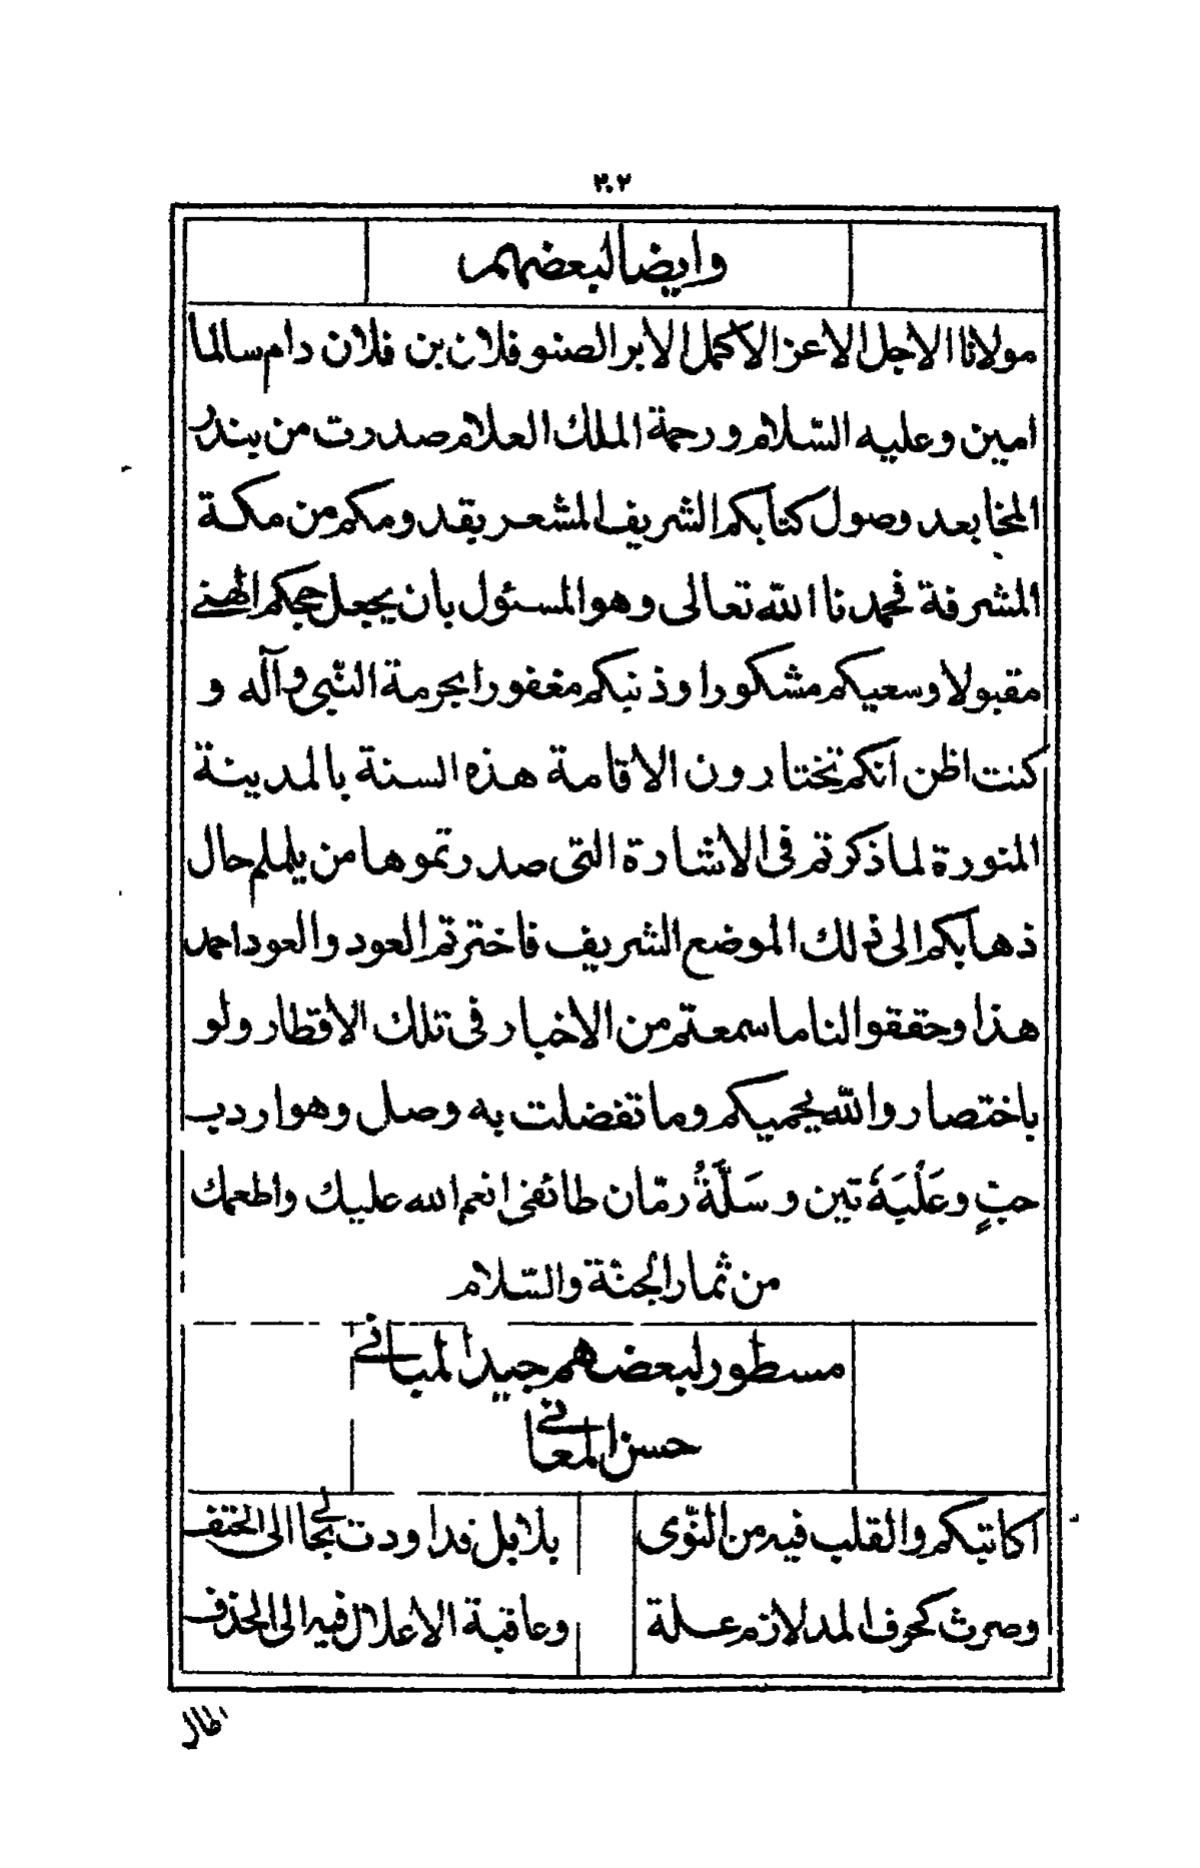 ٢٠٢
وايضا لبعضهم
مولانا الاجل الاعز الاكمل الابر الصنو فلان بن فلان دام سالما
امين وعليه السّلام ورحمة الملك العلام صدرت من بندر
المخا بعد وصول كتابكم الشريف المشعر بقدومكم من مكة
المشرفة فحمدنا اللّه تعالى وهو المسئول بان يجعل حجكم الهني
مقبولا وسعيكم مشكورا وذنبكم مغفورا بحرمة النّبى وآله و
كنت اظن انكم تختارون الاقامة هذه السنة بالمدينة
المنورة لما ذكرتم فى الاشارة التى صدرتموها من يلملم حال
ذهابكم الى ذلك الموضع الشريف فاخترتم العود والعود احمد
هذا وحققوا لنا ما سمعتم من الاخبار فى تلك الاقطار ولو
باختصار واللّه يحميكم وما تفضلت به وصل وهو اردب
حبٍّ وعَلْبَةُ تين وسَلَّةُ رمّان طائفى انعم الله عليك واطعمك
من ثمار الجنّة والسّلام
مسطور لبعضهم جيد المباني
حسن المعاني
اكاتبكم والقلب فيه من النّوى بلابل قد اودت بجا الى الحتف
وصرت كحرف المد لازم علة وعاقبة الاعلال فيه الى الحذف
اطال